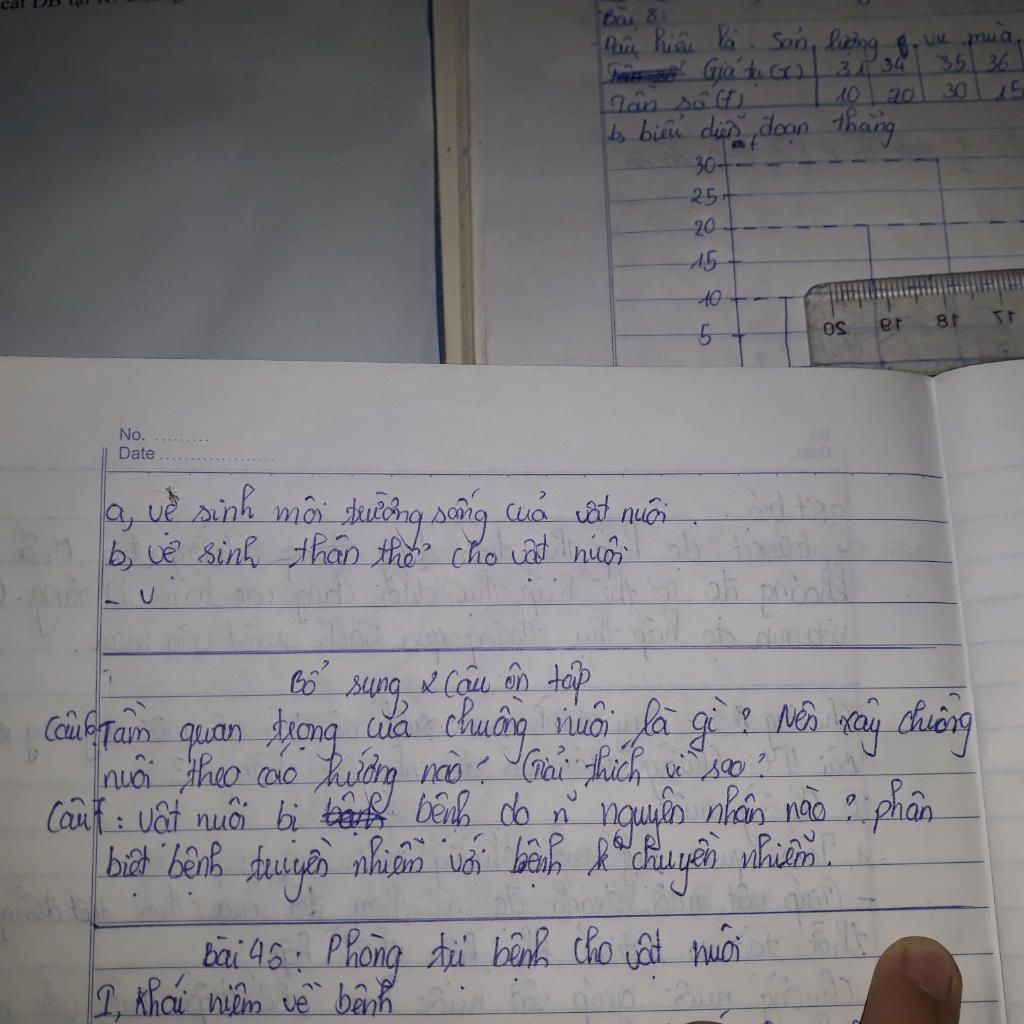 cắt DB tại K.
Bài 8:
Dấu hiệu là: Sản lượng vụ mùa
Giá trị (x) 31 34 35 36
Tần số (f) 10 20 30 15
b, biểu diễn đoạn thẳng
f
30
25
20
15
10
5
20 19 18 17
No. .........
Date ...................
a, vệ sinh môi trường sống của vật nuôi.
b, vệ sinh thân thể cho vật nuôi
- v
Bổ sung 2 câu ôn tập
Câu 6: Tầm quan trọng của chuồng nuôi là gì? Nên xây chuồng
nuôi theo cao hướng nào? Giải thích vì sao?
Câu 7: vật nuôi bị bệnh do n~ nguyên nhân nào? phân
biệt bệnh truyền nhiễm với bệnh k chuyền nhiễm.
Bài 46: Phòng trị bệnh cho vật nuôi
I, Khái niệm về bệnh